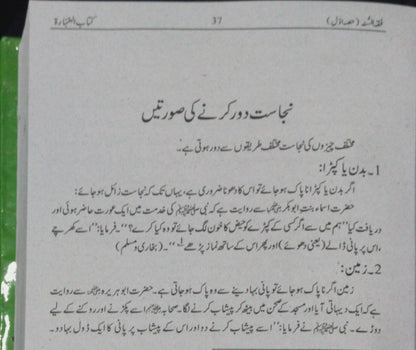 فقہ السنہ (حصہ اوّل) 37 کتاب الطہارۃ
نجاست دور کرنے کی صورتیں
مختلف چیزوں کی نجاست مختلف طریقوں سے دور ہوتی ہے۔
1۔ بدن یا کپڑا:
اگر بدن یا کپڑا ناپاک ہو جائے تو اس کا دھونا ضروری ہے، یہاں تک کہ نجاست زائل ہو جائے:
حضرت اسماء بنت ابوبکرؓ سے روایت ہے کہ نبی ﷺ کی خدمت میں ایک عورت حاضر ہوئی اور
دریافت کیا ’’ہم میں سے اگر کسی کے کپڑے کو حیض کا خون لگ جائے تو وہ کیا کرے؟‘‘۔ فرمایا: ’’اسے کھرچے
، اس پر پانی ڈالے (یعنی دھوئے) اور پھر اس کے ساتھ نماز پڑھے‘‘۔ (بخاری و مسلم)
2۔ زمین:
زمین اگر ناپاک ہو جائے تو پانی بہا دینے سے وہ پاک ہو جاتی ہے۔ حضرت ابوہریرہؓ سے روایت
ہے کہ ایک دیہاتی آیا اور مسجد کے صحن میں بیٹھ کر پیشاب کرنے لگا۔ صحابہؓ اسے پکڑنے اور روکنے کے لیے
دوڑے۔ نبی ﷺ نے فرمایا: ’’اسے پیشاب کرنے دو اور اس کے پیشاب پر پانی کا ایک ڈول بہا دو۔